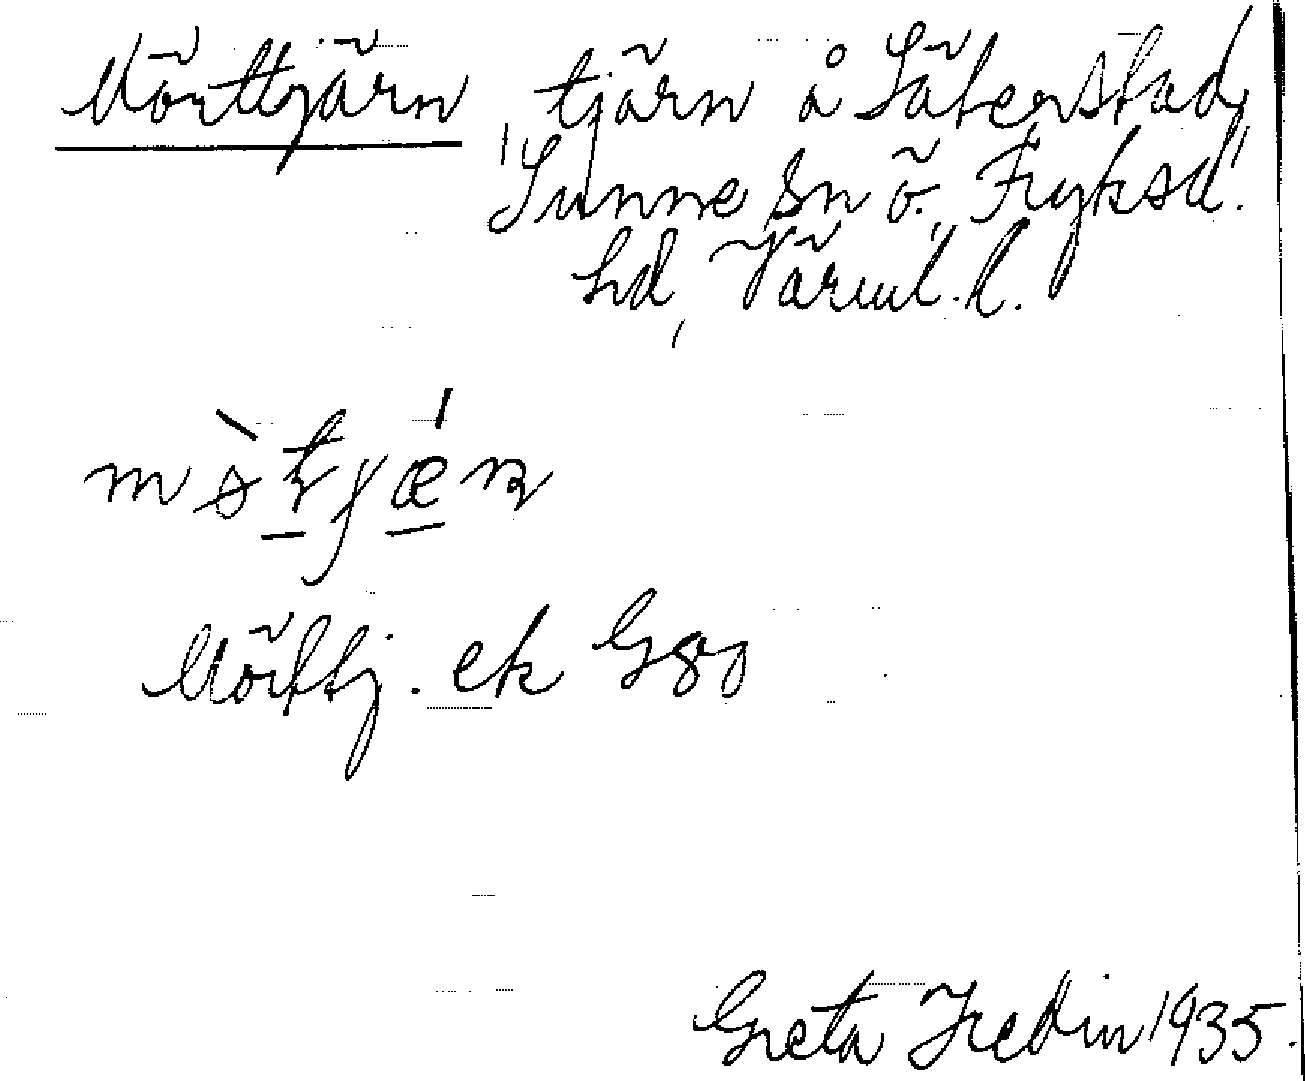 Mörttjärn, tjärn å Säterstad,
Sunne sn ö. Fryksd.
hd, Värml. l.
Mörttj. ek G
Greta Hedin 1935.